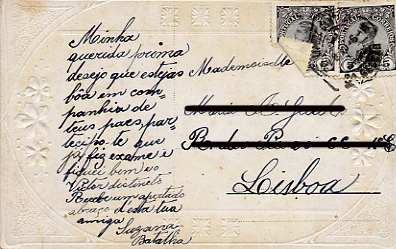 Minha
querida prima
desejo que estejas
bôa em com-
panhia de
teus paes, par-
tecipo-te que
já fiz exame e
fiquei bem e o
Victor distincto
Recebe um apertado
abraço d'esta tua
amiga
Suzana
Batalha
Mademoiselle
Lisboa